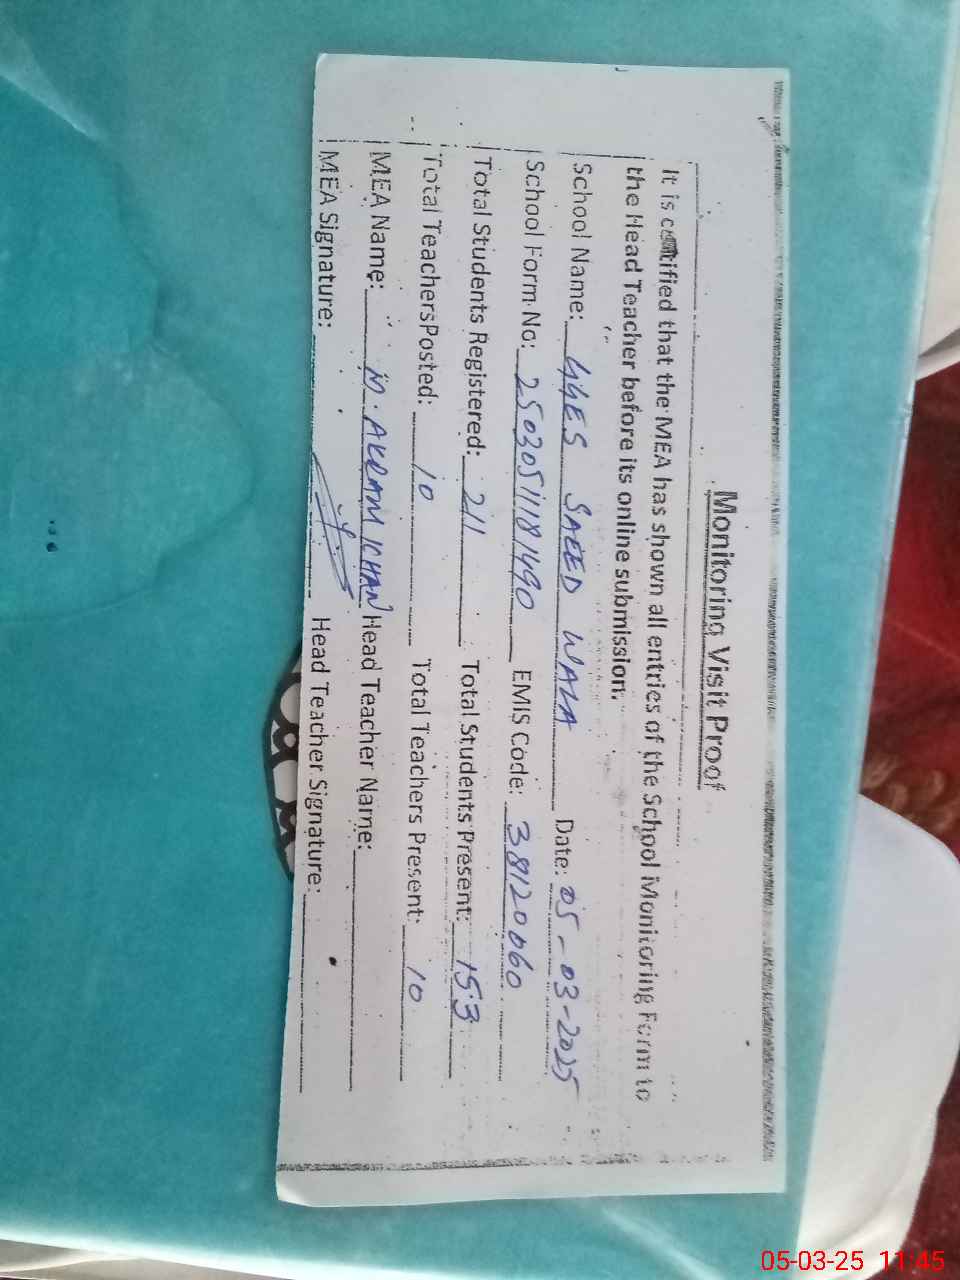 Monitoring Visit Proof
It is certified that the MEA has shown all entries of the School Monitoring Form to
the Head Teacher before its online submission.
School Name: GGES SAEED WALA Date: 05-03-2025
School Form No: 25030511181490 EMIS Code: 38120060
Total Students Registered: 211 Total Students Present: 153
Total TeachersPosted: 10 Total Teachers Present: 10
MEA Name: M. AKRAM KHAN Head Teacher Name:
MEA Signature: Head Teacher Signature:
05-03-25 11:45